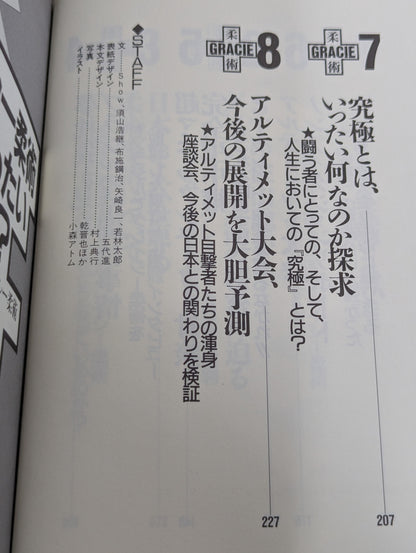 柔
GRACIE
術
7
究極とは、
いったい何なのか探求
★闘う者にとっての、そして、
人生においての『究極』とは?
207
柔
GRACIE
術
8
アルティメット大会、
今後の展開を大胆予測
★アルティメット目撃者たちの渾身
座談会、今後の日本との関わりを検証
227
◆STAFF
文……Show、須山浩継、布施鋼治、矢崎良一、若林太郎
表紙デザイン……五代進
本文デザイン……村上典行
写真……乾晋也ほか
イラスト……小森アトム
柔術
たい
?